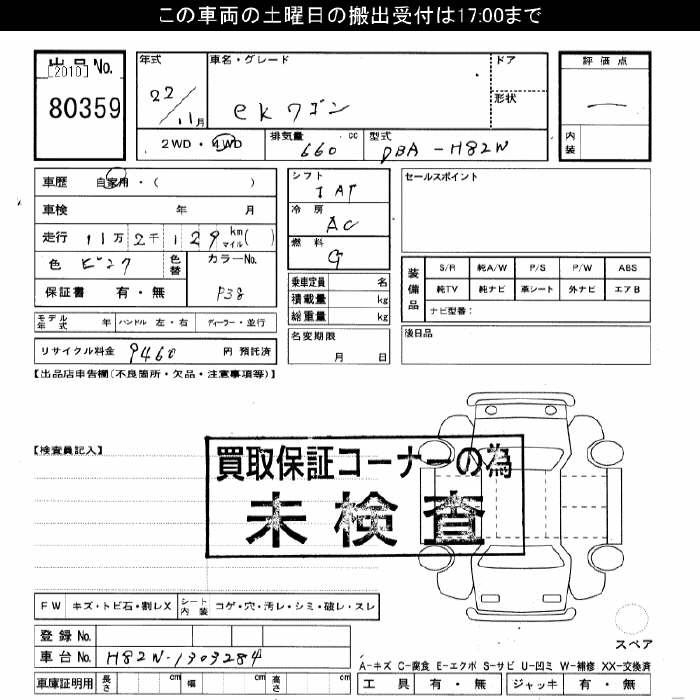 この車両の土曜日の搬出受付は17:00まで
出品No.
[2010]
80359
年式
22/11月
車名・グレード
ekワゴン
ドア
形状
評価点
内装
2WD・4WD
排気量
660 cc
型式
DBA-H82W
車歴 自家用・( )
車検 年 月
走行 11万2千129 km マイル( )
色 ピンク
色替
カラーNo.
P38
保証書 有・無
シフト
IAT
冷房
AC
燃料
G
セールスポイント
装備品
S/R 純A/W P/S P/W ABS
純TV 純ナビ 革シート 外ナビ エアB
ナビ型番:
乗車定員 名
積載量 kg
総重量 kg
モデル年式 年 ハンドル 左・右 ディーラー・並行
名変期限
月 日
後日品
リサイクル料金 9460 円 預託済
【出品店申告欄(不良箇所・欠品・注意事項等)】
【検査員記入】
買取保証コーナーの為
未検査
FW キズ・トビ石・割レX
シート内装 コゲ・穴・汚レ・シミ・破レ・スレ
スペア
登録No.
車台No. H82W-1303284
A-キズ C-腐食 E-エクボ S-サビ U-凹ミ W-補修 XX-交換済
車庫証明用 長さ cm 幅 cm 高さ cm
工具 有・無 ジャッキ 有・無